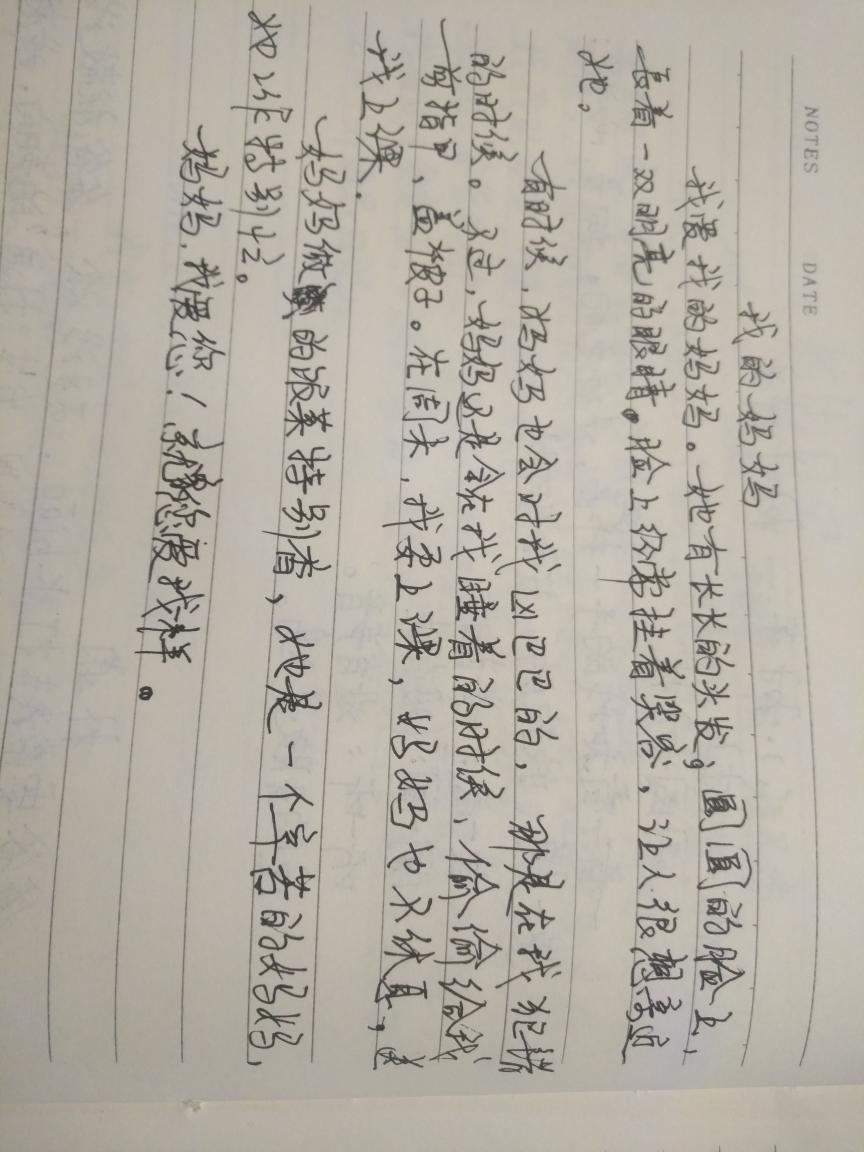 NOTES DATE
我的妈妈
我爱我的妈妈。她有长长的头发，圆圆的脸上，
長着一双明亮的眼睛。脸上经常挂着笑容，让人很想亲近
她。
有时候，妈妈也会对我凶巴巴的，那是在我犯错
的时候。不过，妈妈还是会在我睡着的时候、偷偷给我
剪指甲、盖被子。在周末，我要上课，妈妈也不休息，送
我上课.
妈妈做的饭菜特别香，她是一个辛苦的妈妈，
她工作特别忙。
妈妈，我爱您！就像您爱我样。